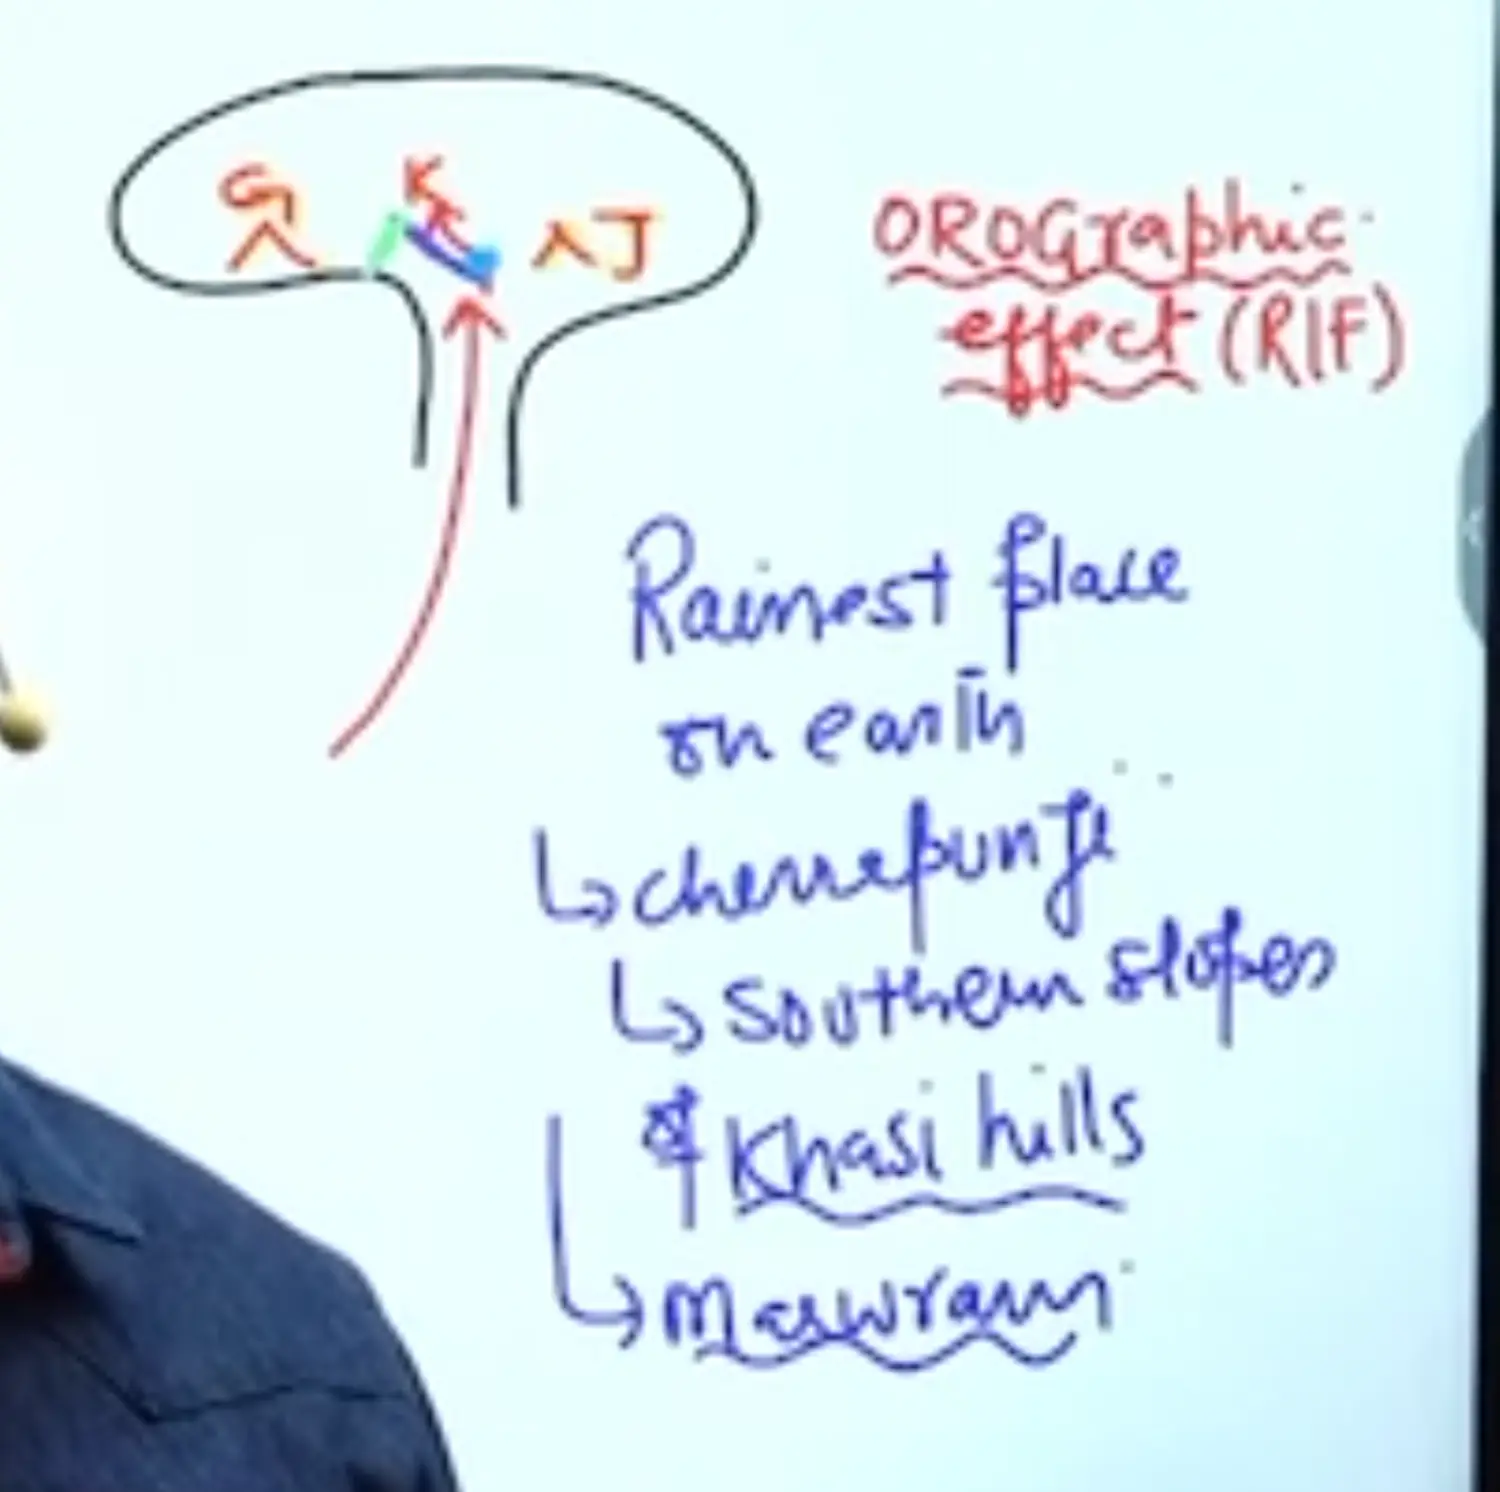 G K J
OROGraphic
effect (R/F)
Rainest place
on earth
↳ cherrapunji
↳ Southern slopes
of Khasi hills
↳ Mawsynram